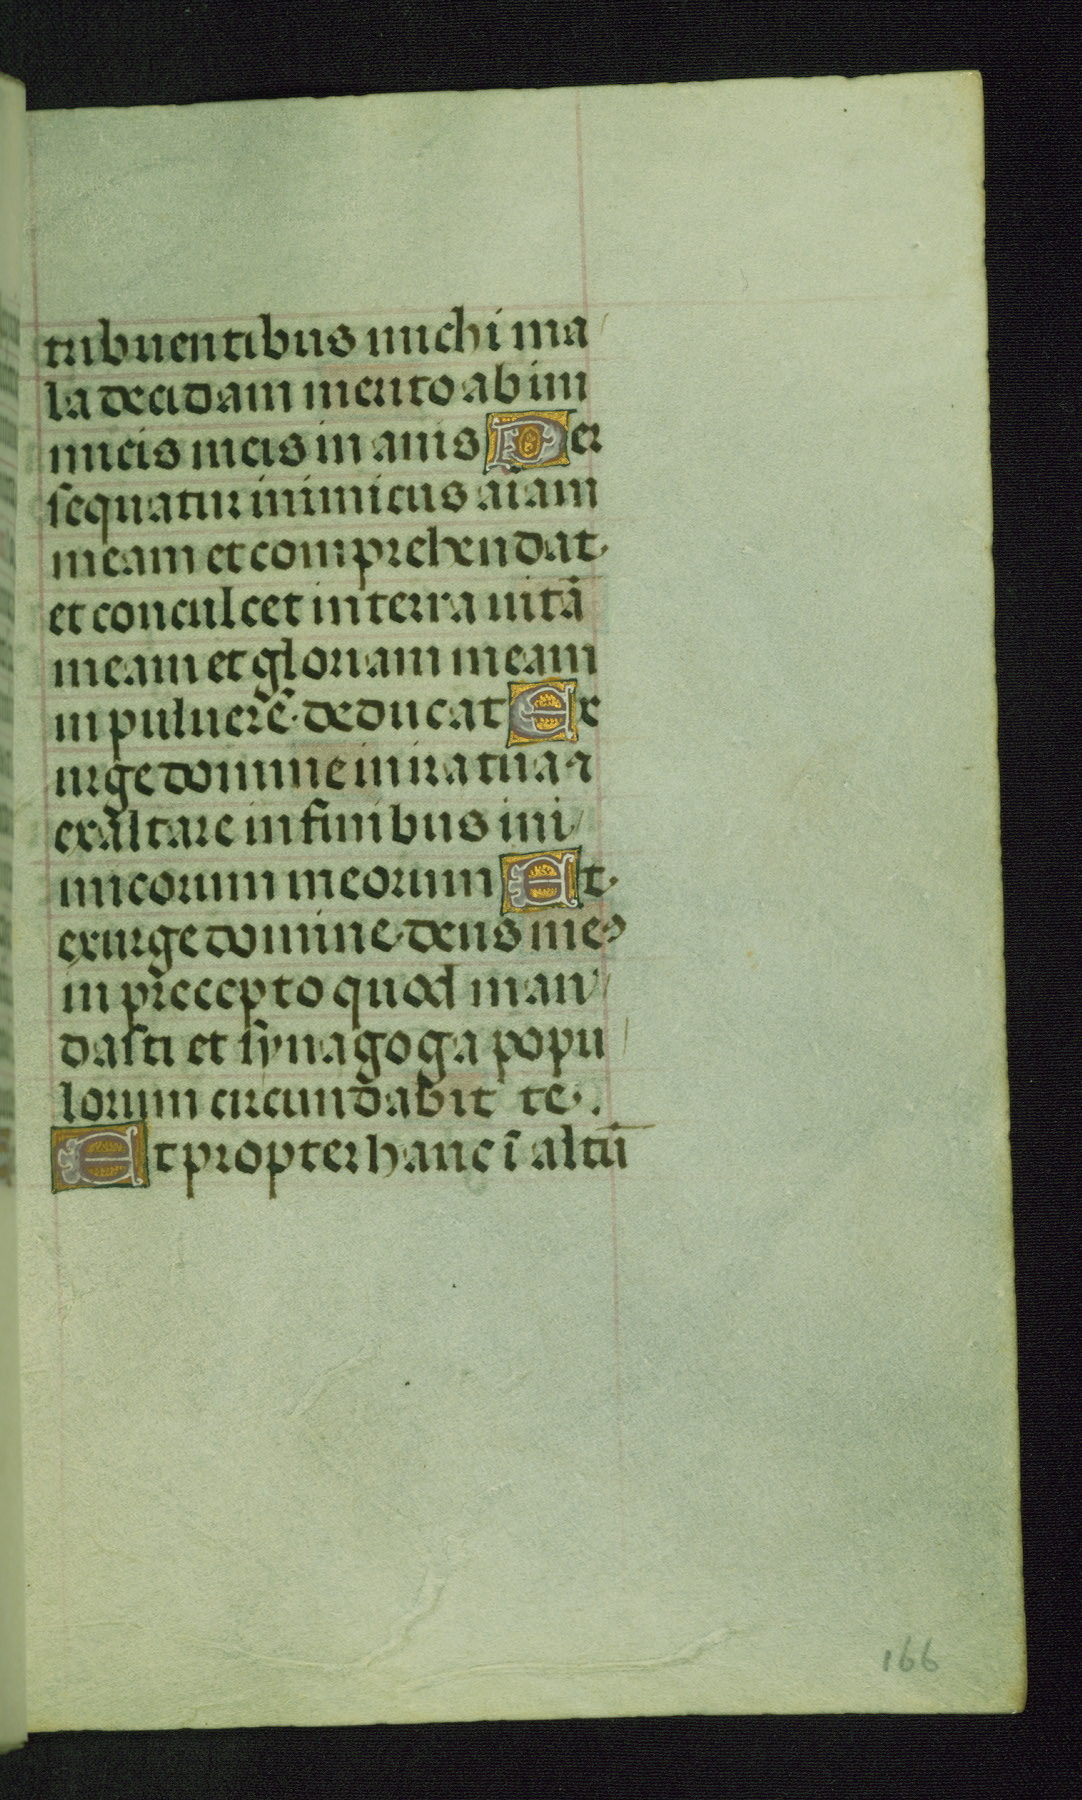 tribuentibus michi ma
la decidam merito ab ini
micis meis inanis Per
sequatur inimicus aīam
meam et comprehendat
et conculcet in terra uitā
meam et gloriam meam
in puluerē deducat Ex
urge domine in ira tua ⁊
exaltare in finibus ini
micorum meorum Et
exurge domine deus meꝰ
in precepto quod man
dasti et synagoga popu
lorum circundabit te.
Et propter hanc ī altū
166